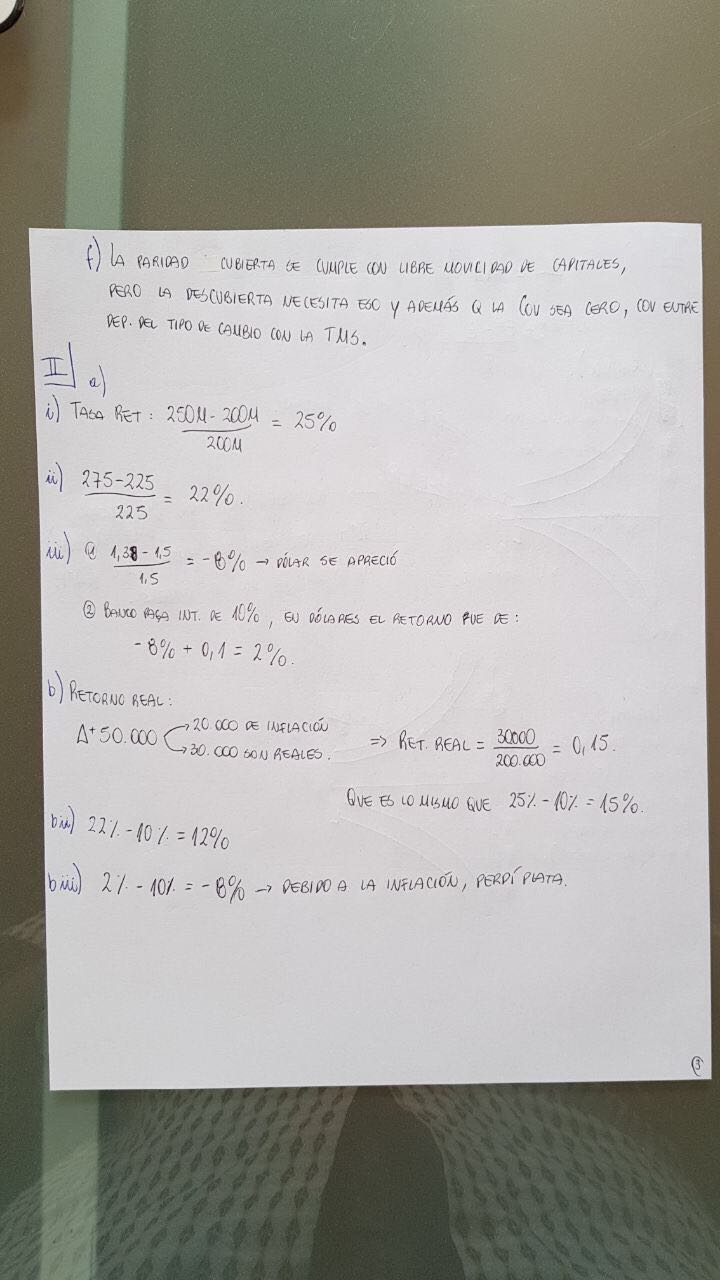 f) LA PARIDAD CUBIERTA SE CUMPLE CON LIBRE MOVILIDAD DE CAPITALES,
PERO LA DESCUBIERTA NECESITA ESO Y ADEMÁS Q LA COV SEA CERO, COV ENTRE
DEP. DEL TIPO DE CAMBIO CON LA TMS.
II a)
i) TASA RET: 250M - 200M / 200M = 25%
ii) 275-225 / 225 = 22%.
iii) ① 1,38 - 1,5 / 1,5 = -8% → DÓLAR SE APRECIÓ
② BANCO PAGA INT. DE 10%, EN DÓLARES EL RETORNO FUE DE:
-8% + 0,1 = 2%.
b) RETORNO REAL:
Δ+ 50.000 → 20.000 DE INFLACIÓN
→ 30.000 SON REALES.
⇒ RET. REAL = 30000 / 200.000 = 0,15.
QUE ES LO MISMO QUE 25% - 10% = 15%.
bii) 22% - 10% = 12%
biii) 2% - 10% = -8% → DEBIDO A LA INFLACIÓN, PERDÍ PLATA.
3